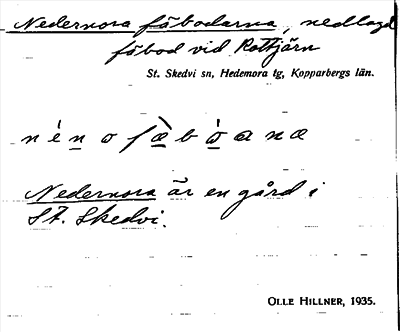 Nedernora fäbodarna, nedlagd
fäbod vid Rottjärn
St. Skedvi sn, Hedemora tg, Kopparbergs län.
Nedernora är en gård i
St. Skedvi.
OLLE HILLNER, 1935.